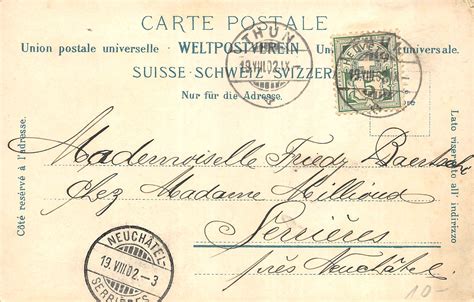 CARTE POSTALE
Union postale universelle WELTPOSTVEREIN
SUISSE · SCHWEIZ · SVIZZERA
Nur für die Adresse.
THUN
19.VIII.02.IX
HELVETIA
Côté réservé à l'adresse.
Lato riservato all' indirizzo
Mademoiselle Friedy
Chez Madame Millioud
Serrières
près Neuchâtel
NEUCHÂTEL
19.VIII.02.-3
SERRIÈRES
10-